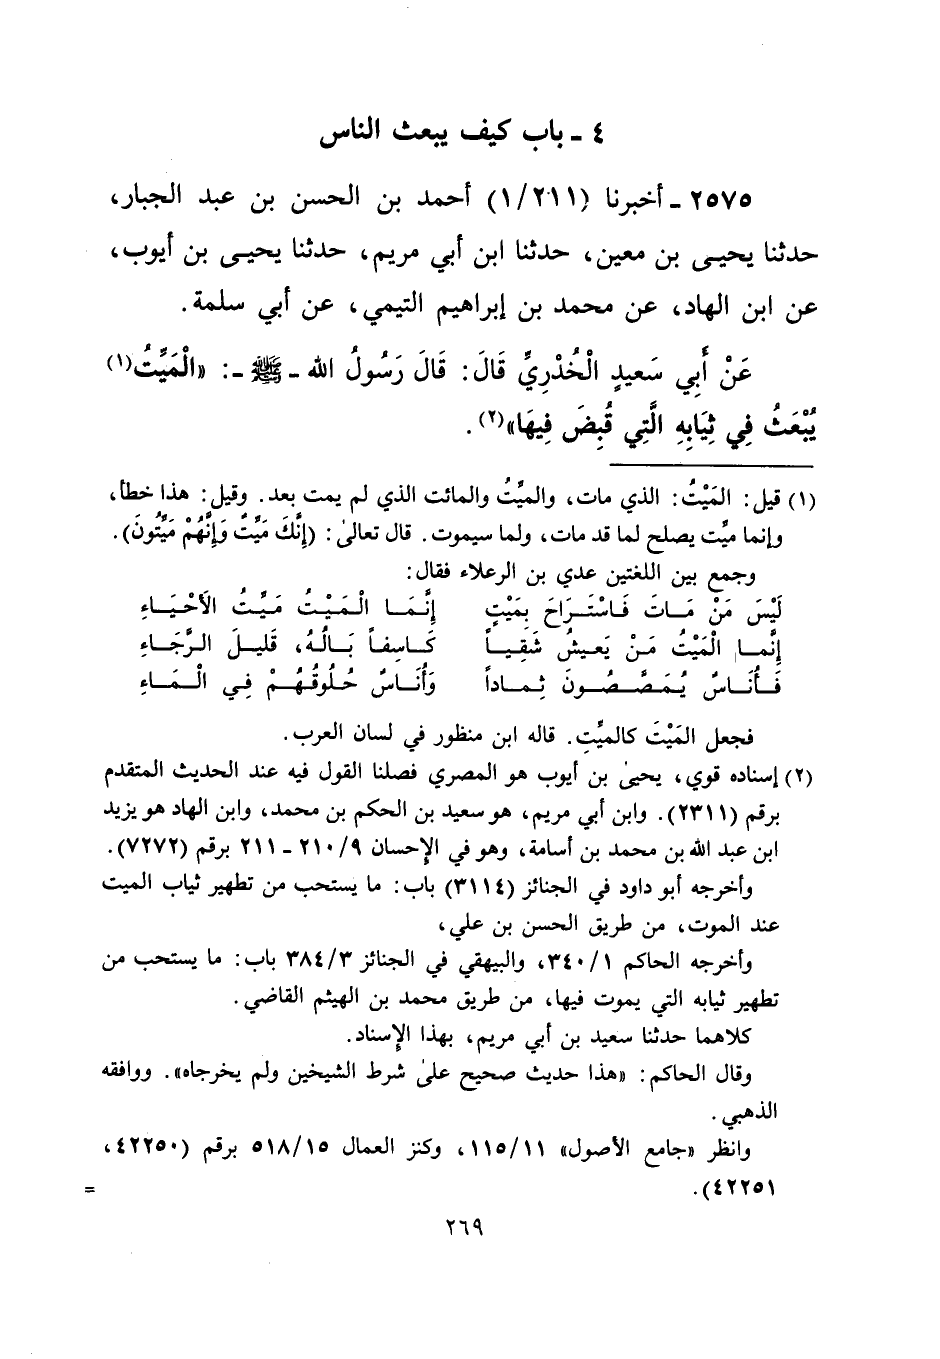 ٤ - باب كيف يبعث الناس
٢٥٧٥ - أخبرنا (١/٢١١) أحمد بن الحسن بن عبد الجبار،
حدثنا يحيى بن معين، حدثنا ابن أبي مريم، حدثنا يحيى بن أيوب،
عن ابن الهاد، عن محمد بن إبراهيم التيمي، عن أبي سلمة.
عَنْ أَبِي سَعيدٍ الْخُدْرِيِّ قَالَ: قَالَ رَسُولُ الله - ﷺ -: «الْمَيِّتُ(١)
يُبْعَثُ فِي ثِيَابِهِ الَّتِي قُبِضَ فِيهَا»(٢).
(١) قيل: المَيْتُ: الذي مات، والميِّتُ والمائت الذي لم يمت بعد. وقيل: هذا خطأ،
وإنما ميِّت يصلح لما قد مات، ولما سيموت. قال تعالىٰ: (إِنَّكَ مَيِّتٌ وَإِنَّهُمْ مَيِّتُونَ).
وجمع بين اللغتين عدي بن الرعلاء فقال:
لَيْسَ مَنْ مَـاتَ فَـاسْتَـرَاحَ بِمَيْتٍ إِنَّمَـا الْمَيْـتُ مَيِّـتُ الأَحْيَـاءِ
إِنَّمـا الْمَيْتُ مَـنْ يَعيـشُ شَقِيـاً كَـاسِفـاً بَـالُـهُ، قَليـلَ الـرَّجَـاءِ
فَـأُنَـاسٌ يُـمَـصَّـصُـونَ ثِـمـاداً وَأُنَـاسٌ حُلُوقُـهُـمْ فِـي الْـمَـاءِ
فجعل المَيْتَ كالميِّتِ. قاله ابن منظور في لسان العرب.
(٢) إسناده قوي، يحيىٰ بن أيوب هو المصري فصلنا القول فيه عند الحديث المتقدم
برقم (٢٣١١). وابن أبي مريم، هو سعيد بن الحكم بن محمد، وابن الهاد هو يزيد
ابن عبد الله بن محمد بن أسامة، وهو في الإحسان ٩/٢١٠ - ٢١١ برقم (٧٢٧٢).
وأخرجه أبو داود في الجنائز (٣١١٤) باب: ما يستحب من تطهير ثياب الميت
عند الموت، من طريق الحسن بن علي،
وأخرجه الحاكم ١/٣٤٠، والبيهقي في الجنائز ٣/٣٨٤ باب: ما يستحب من
تطهير ثيابه التي يموت فيها، من طريق محمد بن الهيثم القاضي.
كلاهما حدثنا سعيد بن أبي مريم، بهذا الإسناد.
وقال الحاكم: «هذا حديث صحيح علىٰ شرط الشيخين ولم يخرجاه». ووافقه
الذهبي.
وانظر «جامع الأصول» ١١/١١٥، وكنز العمال ١٥/٥١٨ برقم (٤٢٢٥٠،
٤٢٢٥١).
=
٢٦٩